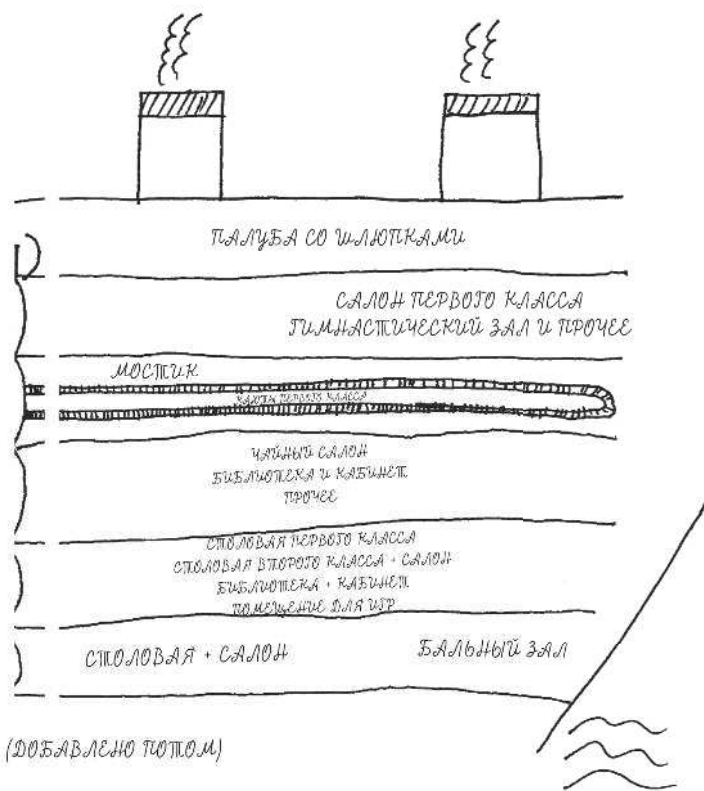 ПАЛУБА СО ШЛЮПКАМИ
САЛОН ПЕРВОГО КЛАССА
ГИМНАСТИЧЕСКИЙ ЗАЛ И ПРОЧЕЕ
МОСТИК
КАЮТЫ ПЕРВОГО КЛАССА
ЧАЙНЫЙ САЛОН
БИБЛИОТЕКА И КАБИНЕТ
ПРОЧЕЕ
СТОЛОВАЯ ПЕРВОГО КЛАССА
СТОЛОВАЯ ВТОРОГО КЛАССА + САЛОН
БИБЛИОТЕКА + КАБИНЕТ
ПОМЕЩЕНИЕ ДЛЯ ИГР
СТОЛОВАЯ + САЛОН
БАЛЬНЫЙ ЗАЛ
(ДОБАВЛЕНО ПОТОМ)